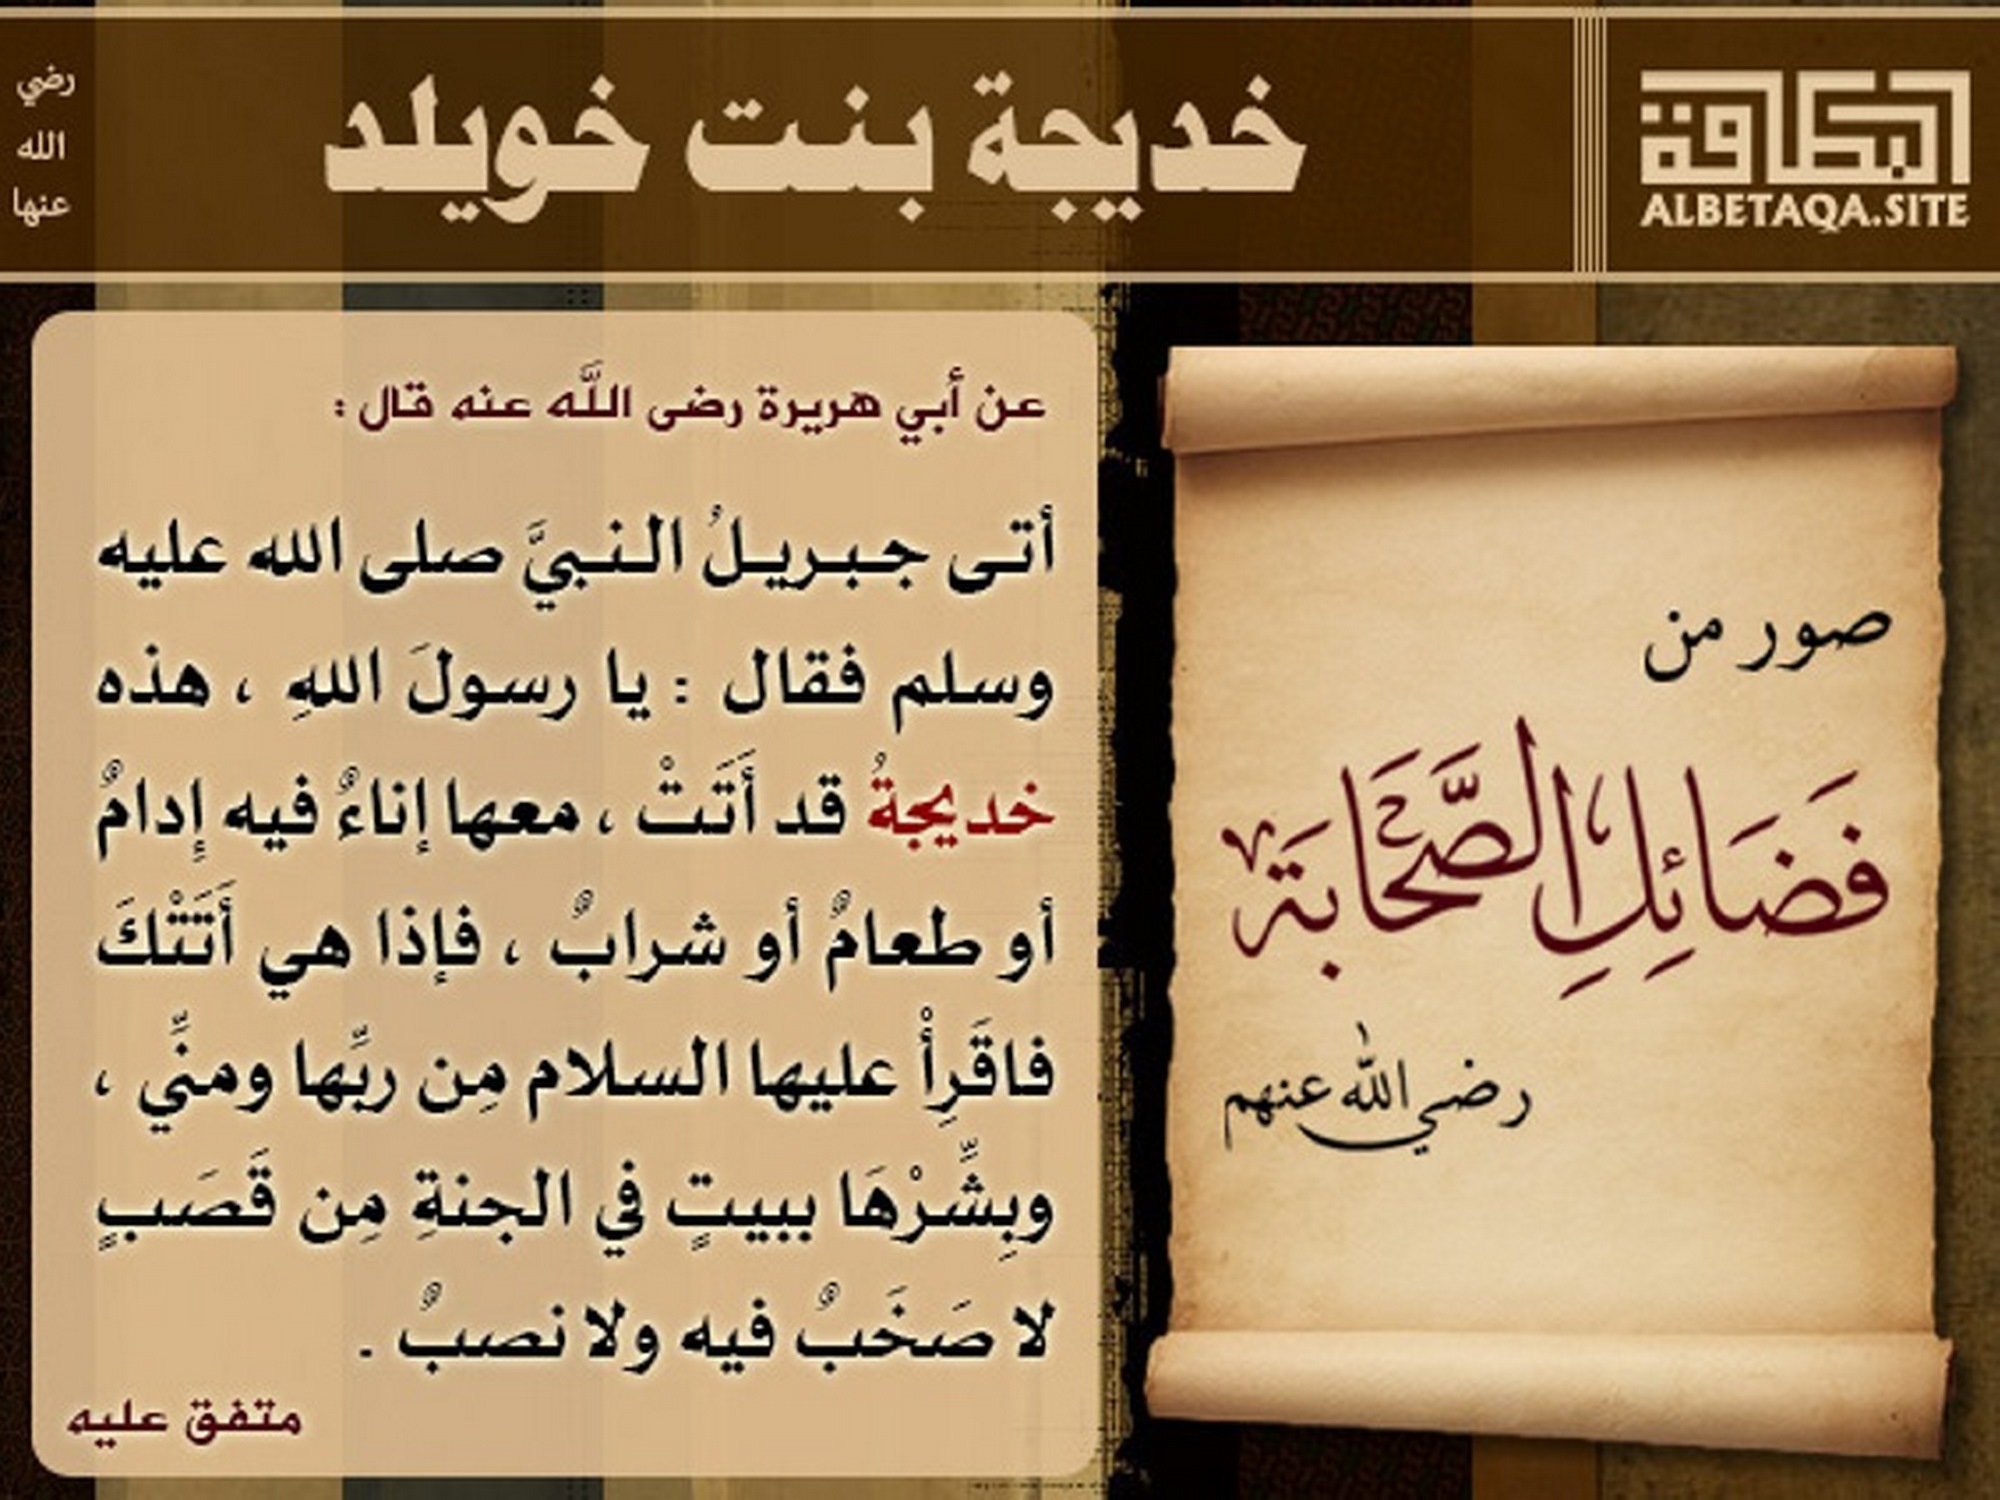 البطاقة
ALBETAQA.SITE
خديجة بنت خويلد
رضي
الله
عنها
صور من
فَضَائِلِ الصَّحَابَة
رضي الله عنهم
عن أبي هريرة رضى اللَّه عنه قال :
أتى جبريلُ النبيَّ صلى الله عليه
وسلم فقال : يا رسولَ اللهِ ، هذه
خديجةُ قد أَتَتْ ، معها إناءٌ فيه إِدامٌ
أو طعامٌ أو شرابٌ ، فإذا هي أَتَتْكَ
فاقَرِأْ عليها السلام مِن ربِّها ومنِّي ،
وبِشِّرْهَا ببيتٍ في الجنةِ مِن قَصَبٍ
لا صَخَبٌ فيه ولا نصبٌ .
متفق عليه